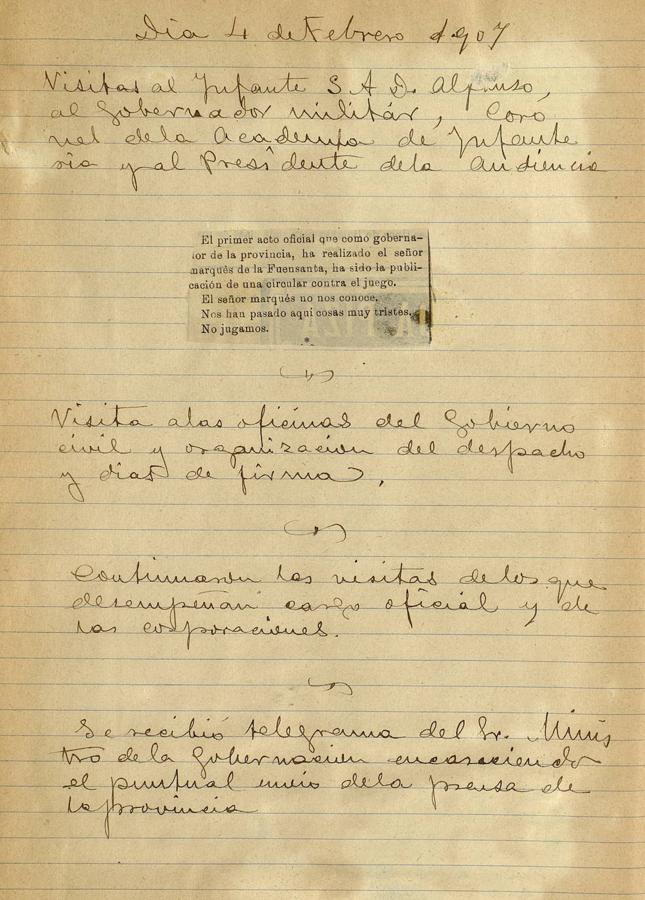 Dia 4 de Febrero 1907
Visitas al Infante S A D. Alfonso,
al Gobernador militár, Coro
nel dela Academia de Infante
ria y al Presidente dela Audiencia
El primer acto oficial que como goberna-
dor de la provincia, ha realizado el señor
marqués de la Fuensanta, ha sido la publi-
cación de una circular contra el juego.
El señor marqués no nos conoce.
Nos han pasado aquí cosas muy tristes.
No jugamos.
Visita alas oficinas del Gobierno
civil y organizacion del despacho
y dias de firma,
Continuaron las visitas delos que
desempeñan cargo oficial y de
las corporaciones.
Se recibió telegrama del Sr. Minis
tro dela Gobernacion encareciendo
el puntual envio dela prensa de
la provincia